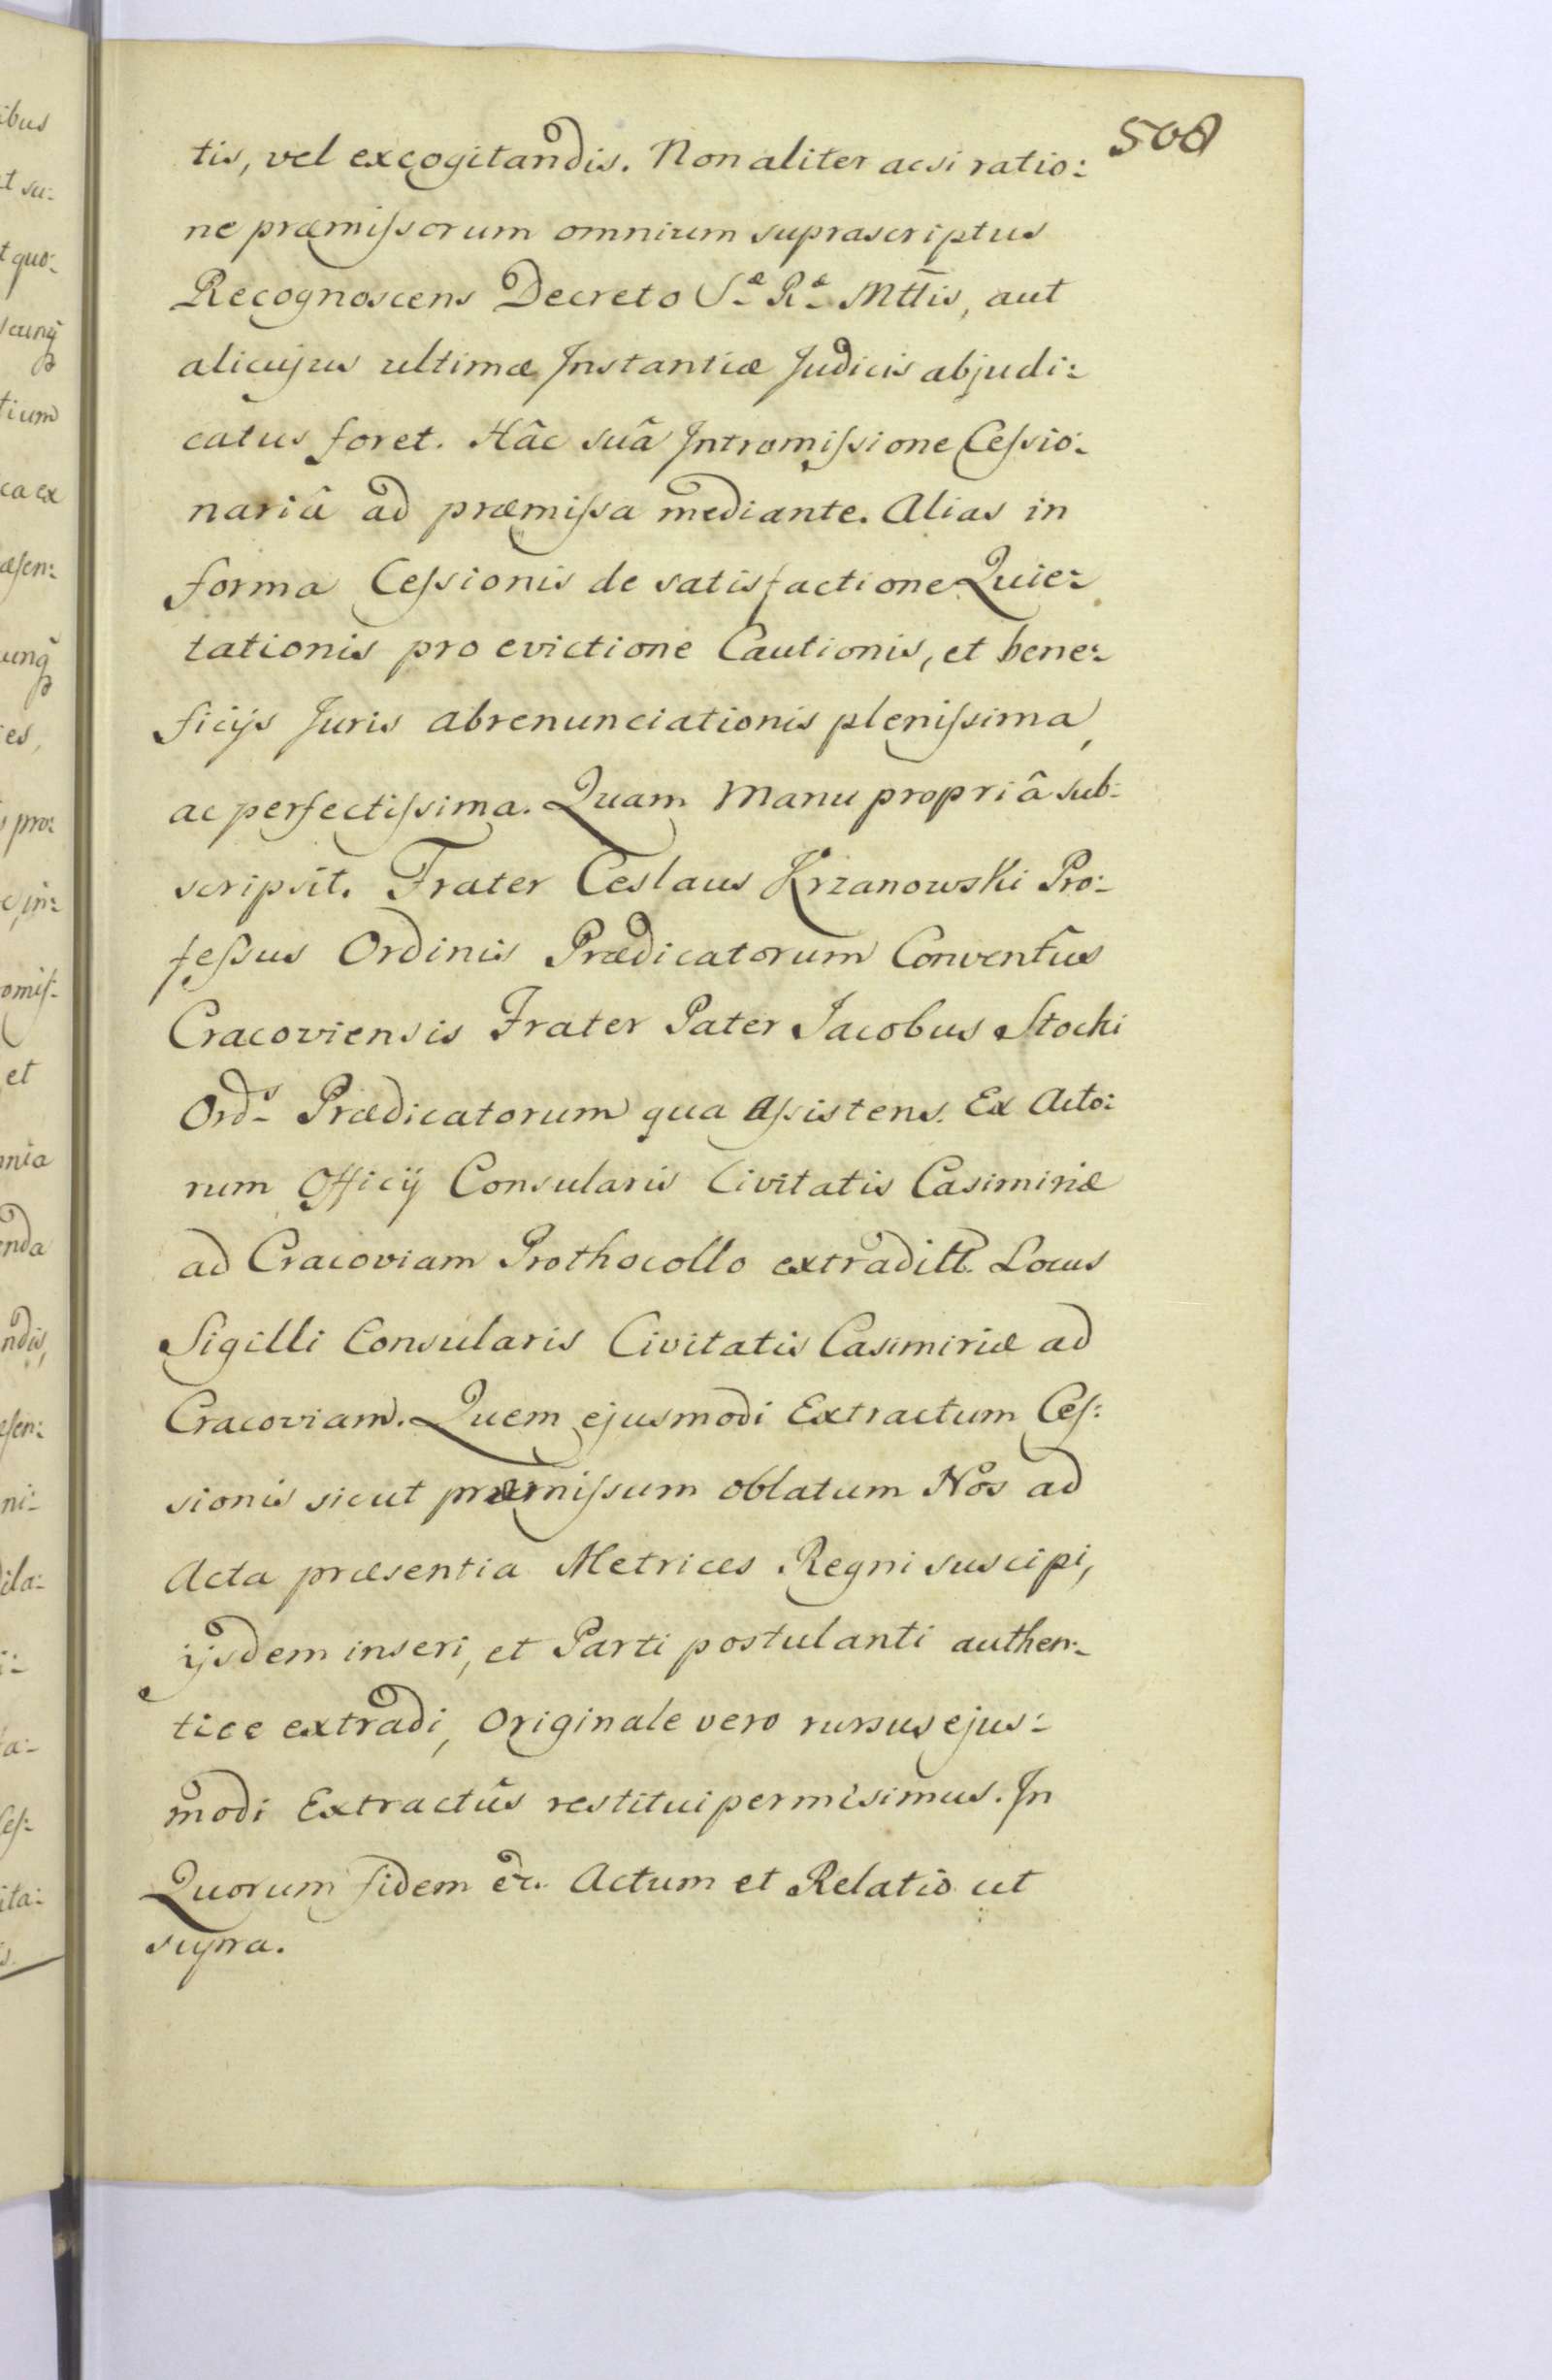 508
tis, vel excogitandis. Non aliter acsi ratio:
ne præmiſsorum omnium suprascriptus
Recognoscens Decreto Sæ Ræ Mttis, aut
alicujus ultimæ Instantiæ Judicis abjudi:
catus foret. Hâc suâ Intromiſsione Ceſsio:
nariâ ad præmiſsa mediante. Alias in
forma Ceſsionis de satisfactione Quie:
tationis pro evictione Cautionis, et bene:
ficijs Juris abrenunciationis pleniſsima,
ac perfectiſsima. Quam Manu propriâ sub:
scripsit. Frater Ceslaus Krzanowski Pro:
feſsus Ordinis Prædicatorum Conventûs
Cracoviensis Frater Pater Jacobus Stocki
Ords Prædicatorum qua Aſsistens. Ex Acto:
rum Officij Consularis Civitatis Casimiriæ
ad Cracoviam Prothocollo extraditt. Locus
Sigilli Consularis Civitatis Casimiriæ ad
Cracoviam. Quem ejusmodi Extractum Ceſ:
sionis sicut præmiſsum oblatum Nos ad
Acta præsentia Metrices Regni suscipi,
ijsdem inseri, et Parti postulanti authen:
tice extradi, Originale vero rursus ejus:
modi Extractûs restitui permisimus. In
Quorum fidem &c. Actum et Relatio ut
supra.
ibus
t su:
t quo:
scunq
tium
ca ex
æſen:
unq
es,
pro:
in:
omiſ:
et
mnia
enda
ndis,
eſen:
ni:
ila:
a:
Ceſ:
ita: